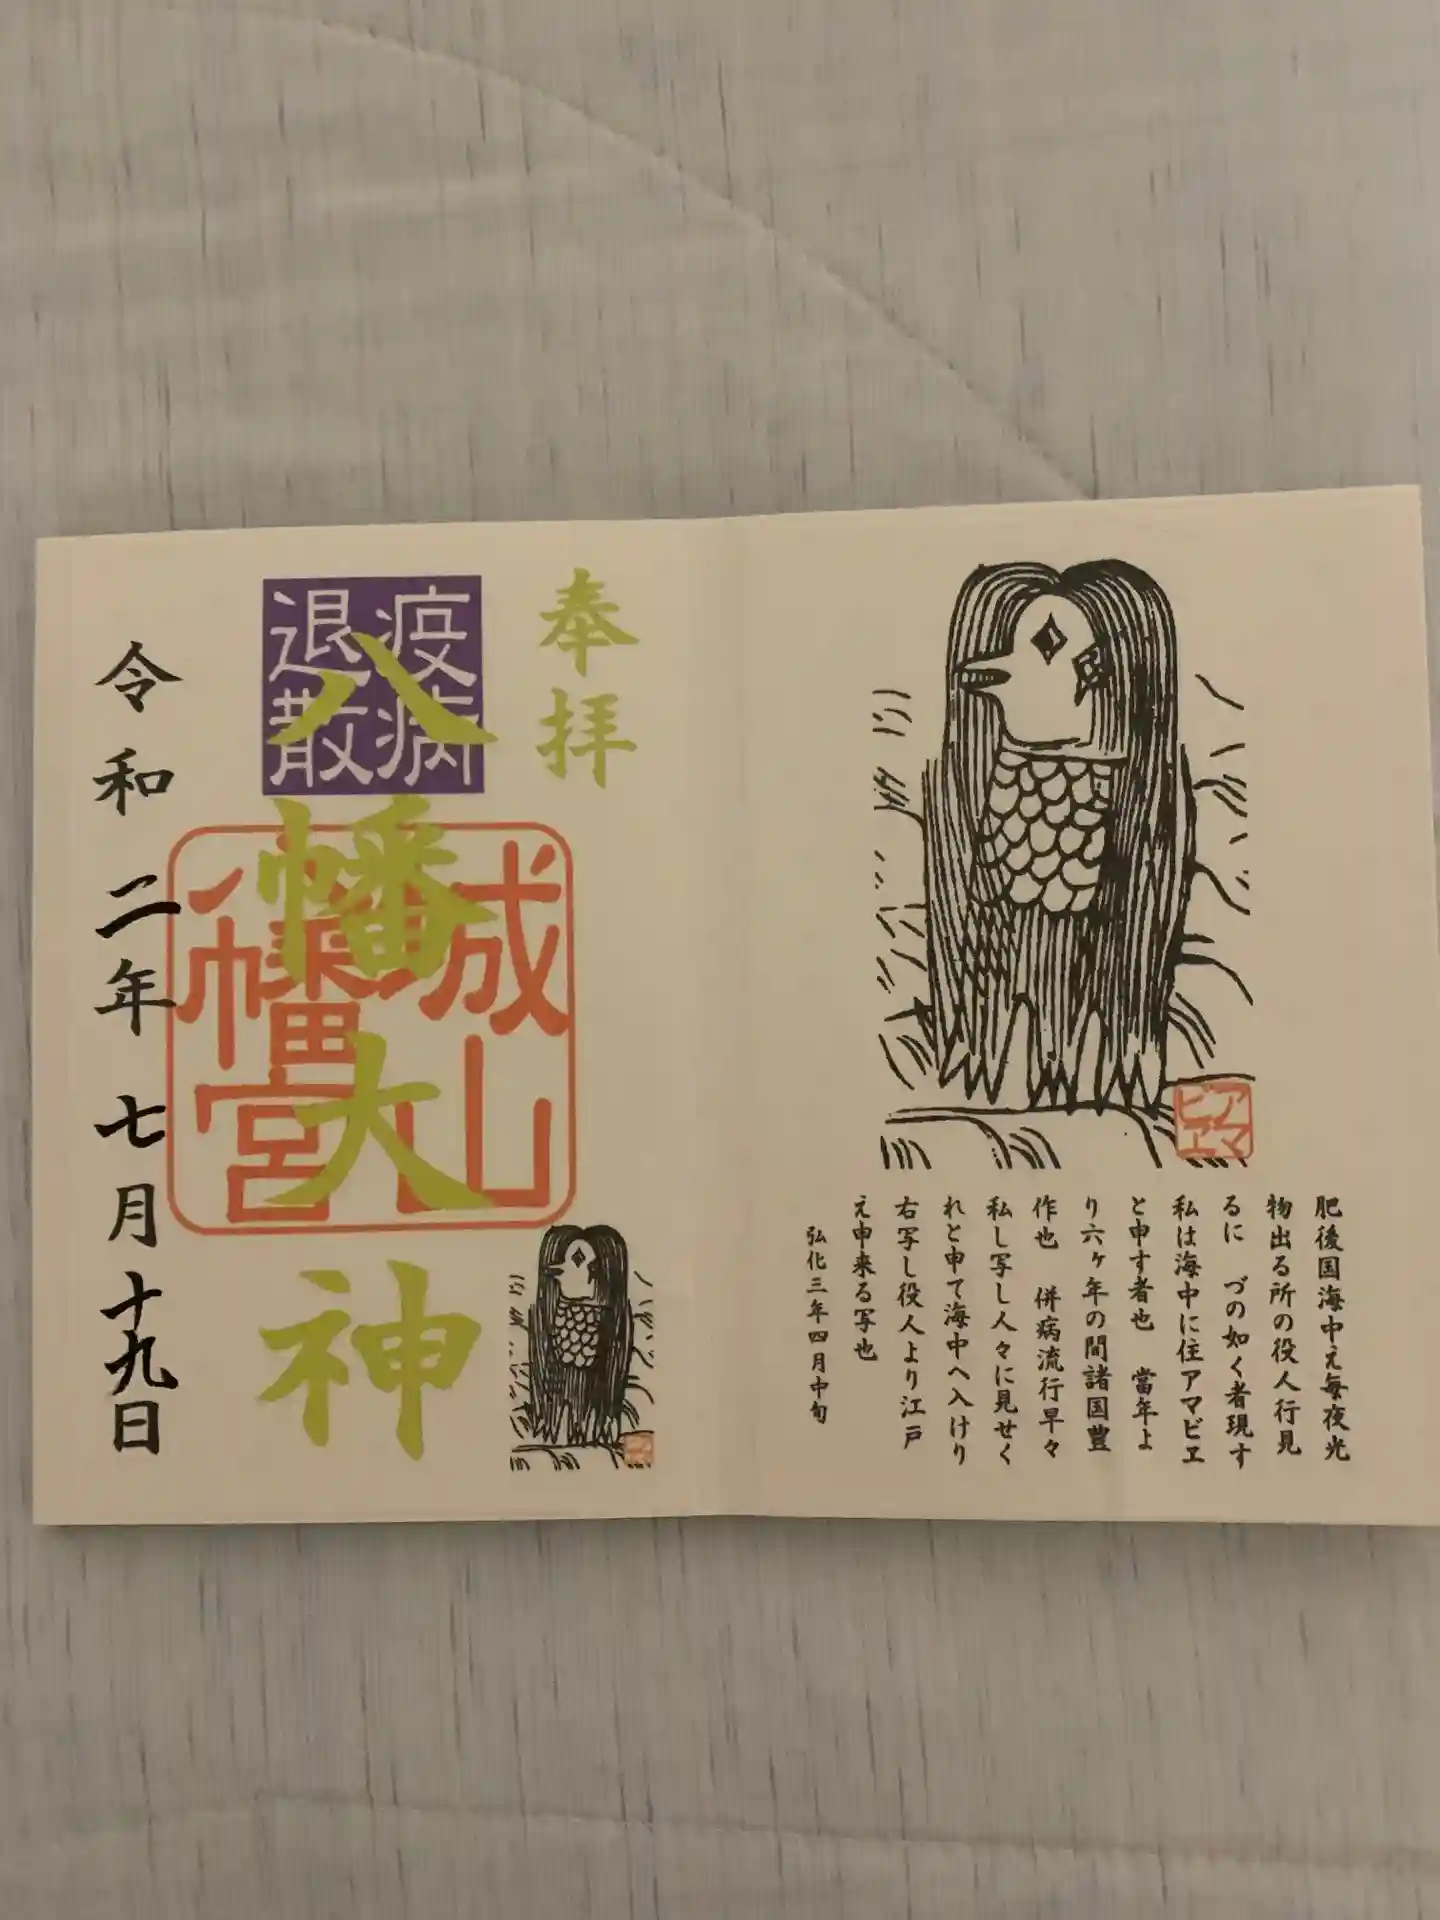 アマ
ビヱ
肥後国海中え毎夜光
物出る所の役人行見
るに　づの如く者現す
私は海中に住アマビヱ
と申す者也　當年よ
り六ヶ年の間諸国豊
作也　併病流行早々
私し写し人々に見せく
れと申て海中へ入けり
右写し役人より江戸
え申来る写也
弘化三年四月中旬
奉拝
疫病
退散
八幡大神
城山
八幡宮
令和二年七月十九日